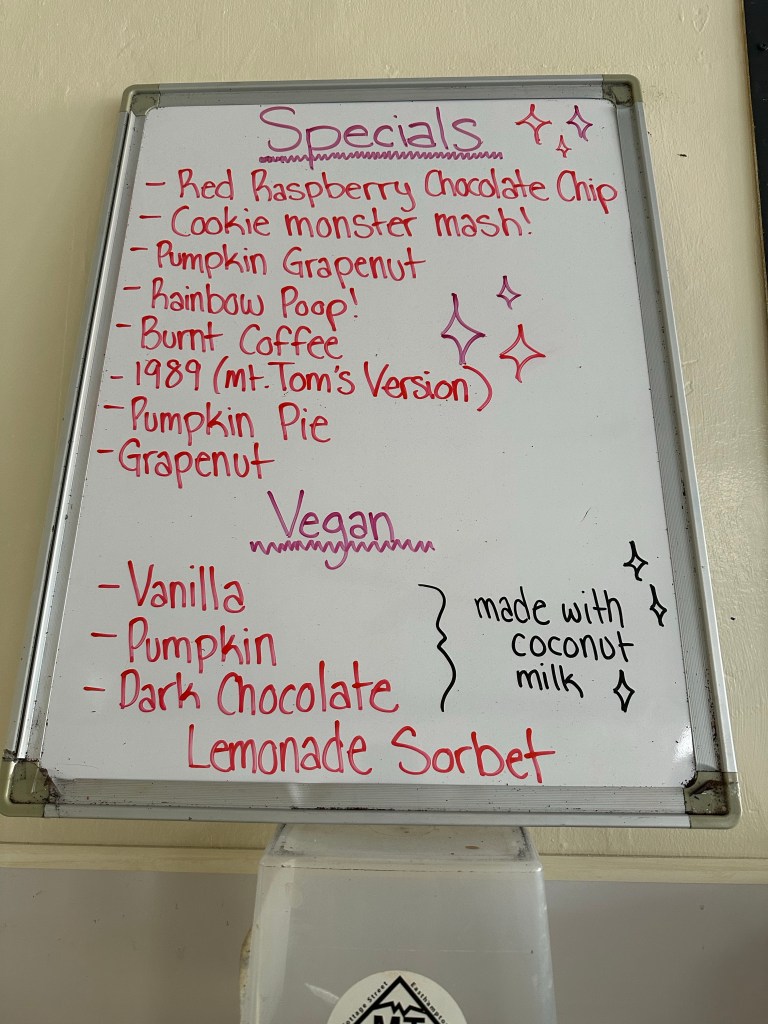 Specials
- Red Raspberry Chocolate Chip
- Cookie monster mash!
- Pumpkin Grapenut
- Rainbow Poop!
- Burnt Coffee
- 1989 (Mt. Tom's Version)
- Pumpkin Pie
- Grapenut
Vegan
- Vanilla
- Pumpkin
- Dark Chocolate
made with
coconut
milk
Lemonade Sorbet
Cottage Street Easthampton
MT